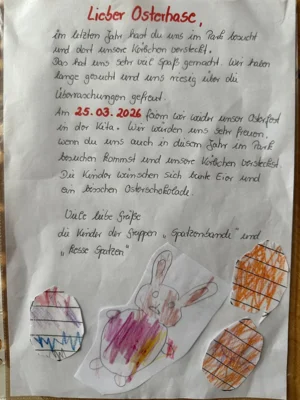 Lieber Osterhase,
im letzten Jahr hast du uns im Park besucht
und dort unsere Körbchen versteckt.
Das hat uns sehr viel Spaß gemacht. Wir haben
lange gesucht und uns riesig über die
Überraschungen gefreut.
Am 25.03.2026 feiern wir wieder unser Osterfest
in der Kita. Wir würden uns sehr freuen,
wenn du uns auch in diesem Jahr im Park
besuchen kommst und unsere Körbchen versteckst.
Die Kinder wünschen sich bunte Eier und
ein bisschen Osterschokolade.
Viele liebe Grüße
die Kinder der Gruppen „Spatzenbande" und
„Spatzen"